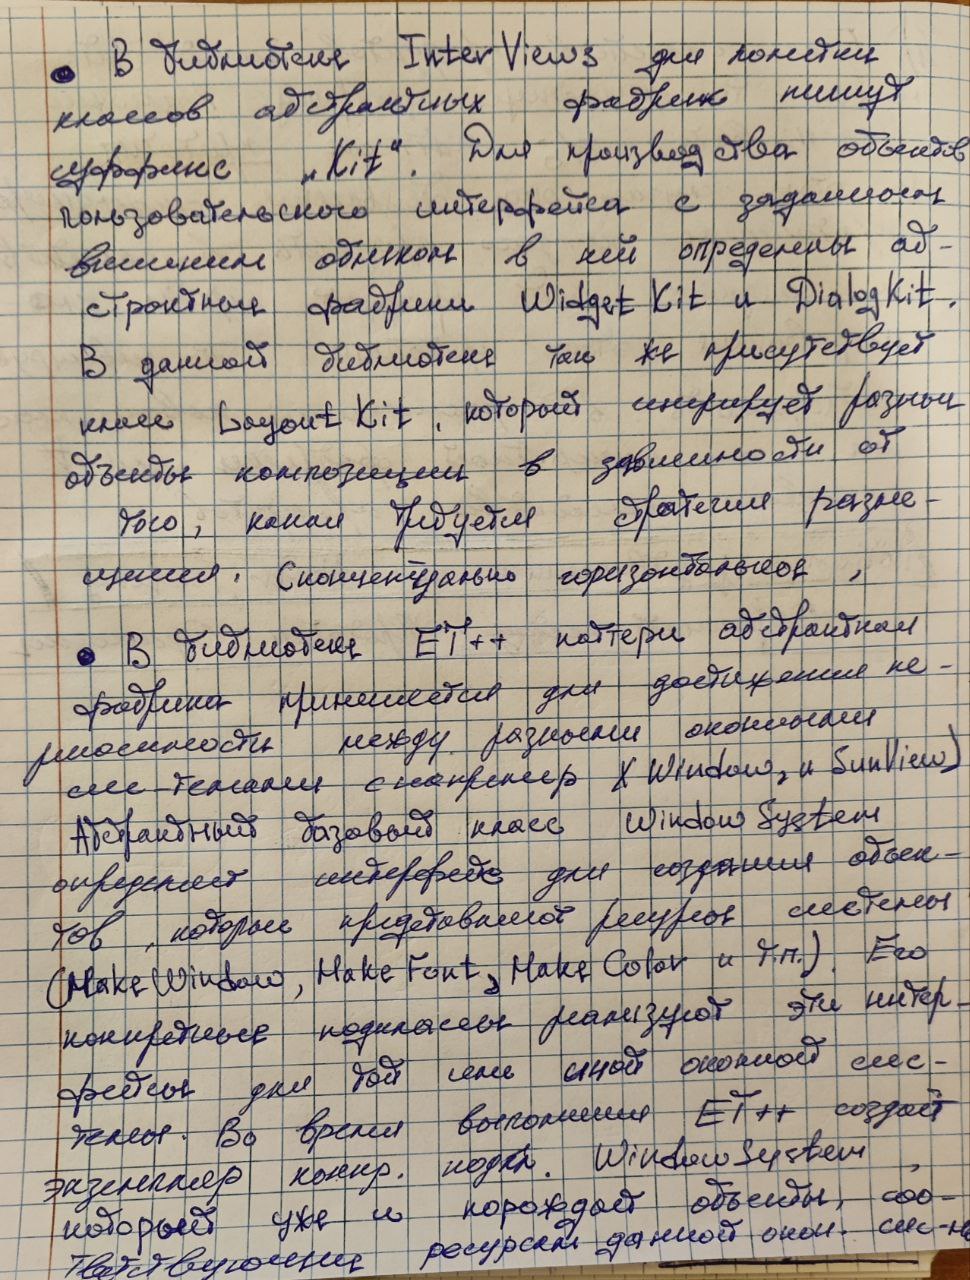 • В библиотеке InterViews для пометки
классов абстрактных фабрик пишут
суффикс „Kit“. Для производства объектов
пользовательского интерфейса с заданным
внешним обликом в ней определены аб-
страктные фабрики WidgetKit и DialogKit.
В данной библиотеке так же присутствует
класс LayoutKit, который генерирует разные
объекты композиции в зависимости от
того, какая требуется стратегия разме-
щения. Сконцентрально горизонтальное,
• В библиотеке ET++ паттерн абстрактная
фабрика применяется для достижения пе-
реносимости между разными оконными
сис-темами (например X Window, и SunView)
Абстрактный базовый класс WindowSystem
определяет интерфейс для создания объек-
тов, которые представляют ресурсы системы
(MakeWindow, MakeFont, MakeColor и т.п.). Его
конкретные подклассы реализуют эти интер-
фейсы для той или иной оконной сис-
темы. Во время выполнения ET++ создаёт
экземпляр конкр. подкл. WindowSystem,
который уже и порождает объекты, соо-
тветствующие ресурсам данной окон. сис-мы